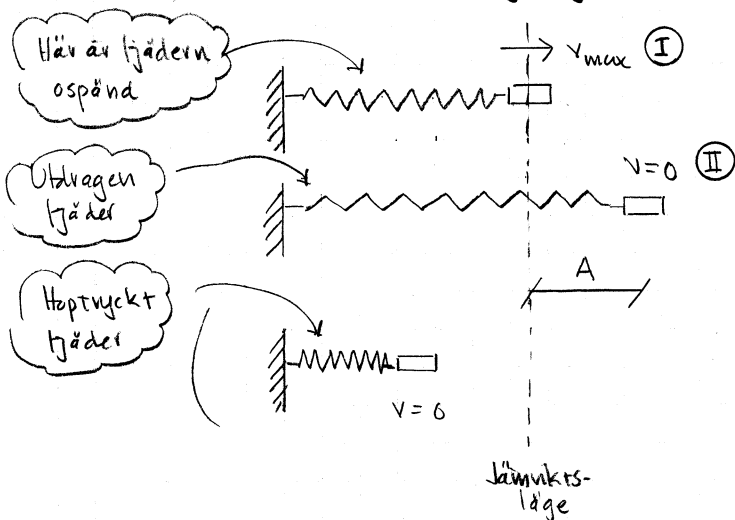 Här är fjädern
ospänd
vmax I
Utdragen
fjäder
v=0 II
A
Hoptryckt
fjäder
v = 0
Jämvikts-
läge